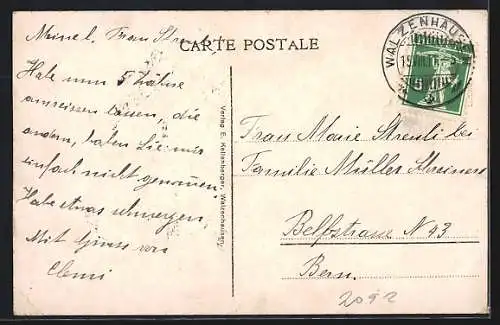 CARTE POSTALE
Meine l. Frau Streuli
Habe nun 5 Zähne
ausreissen lassen, die
andern, haben Sie mir
einfach nicht genommen
Habe etwas schmerzen,
Mit Gruss von
Verlag E. Kellenberger, Walzenhausen
WALZENHAUSEN
Frau Marie Streuli bei
Familie Müller Schreiners
Belpstrasse N 43
Bern.
2092